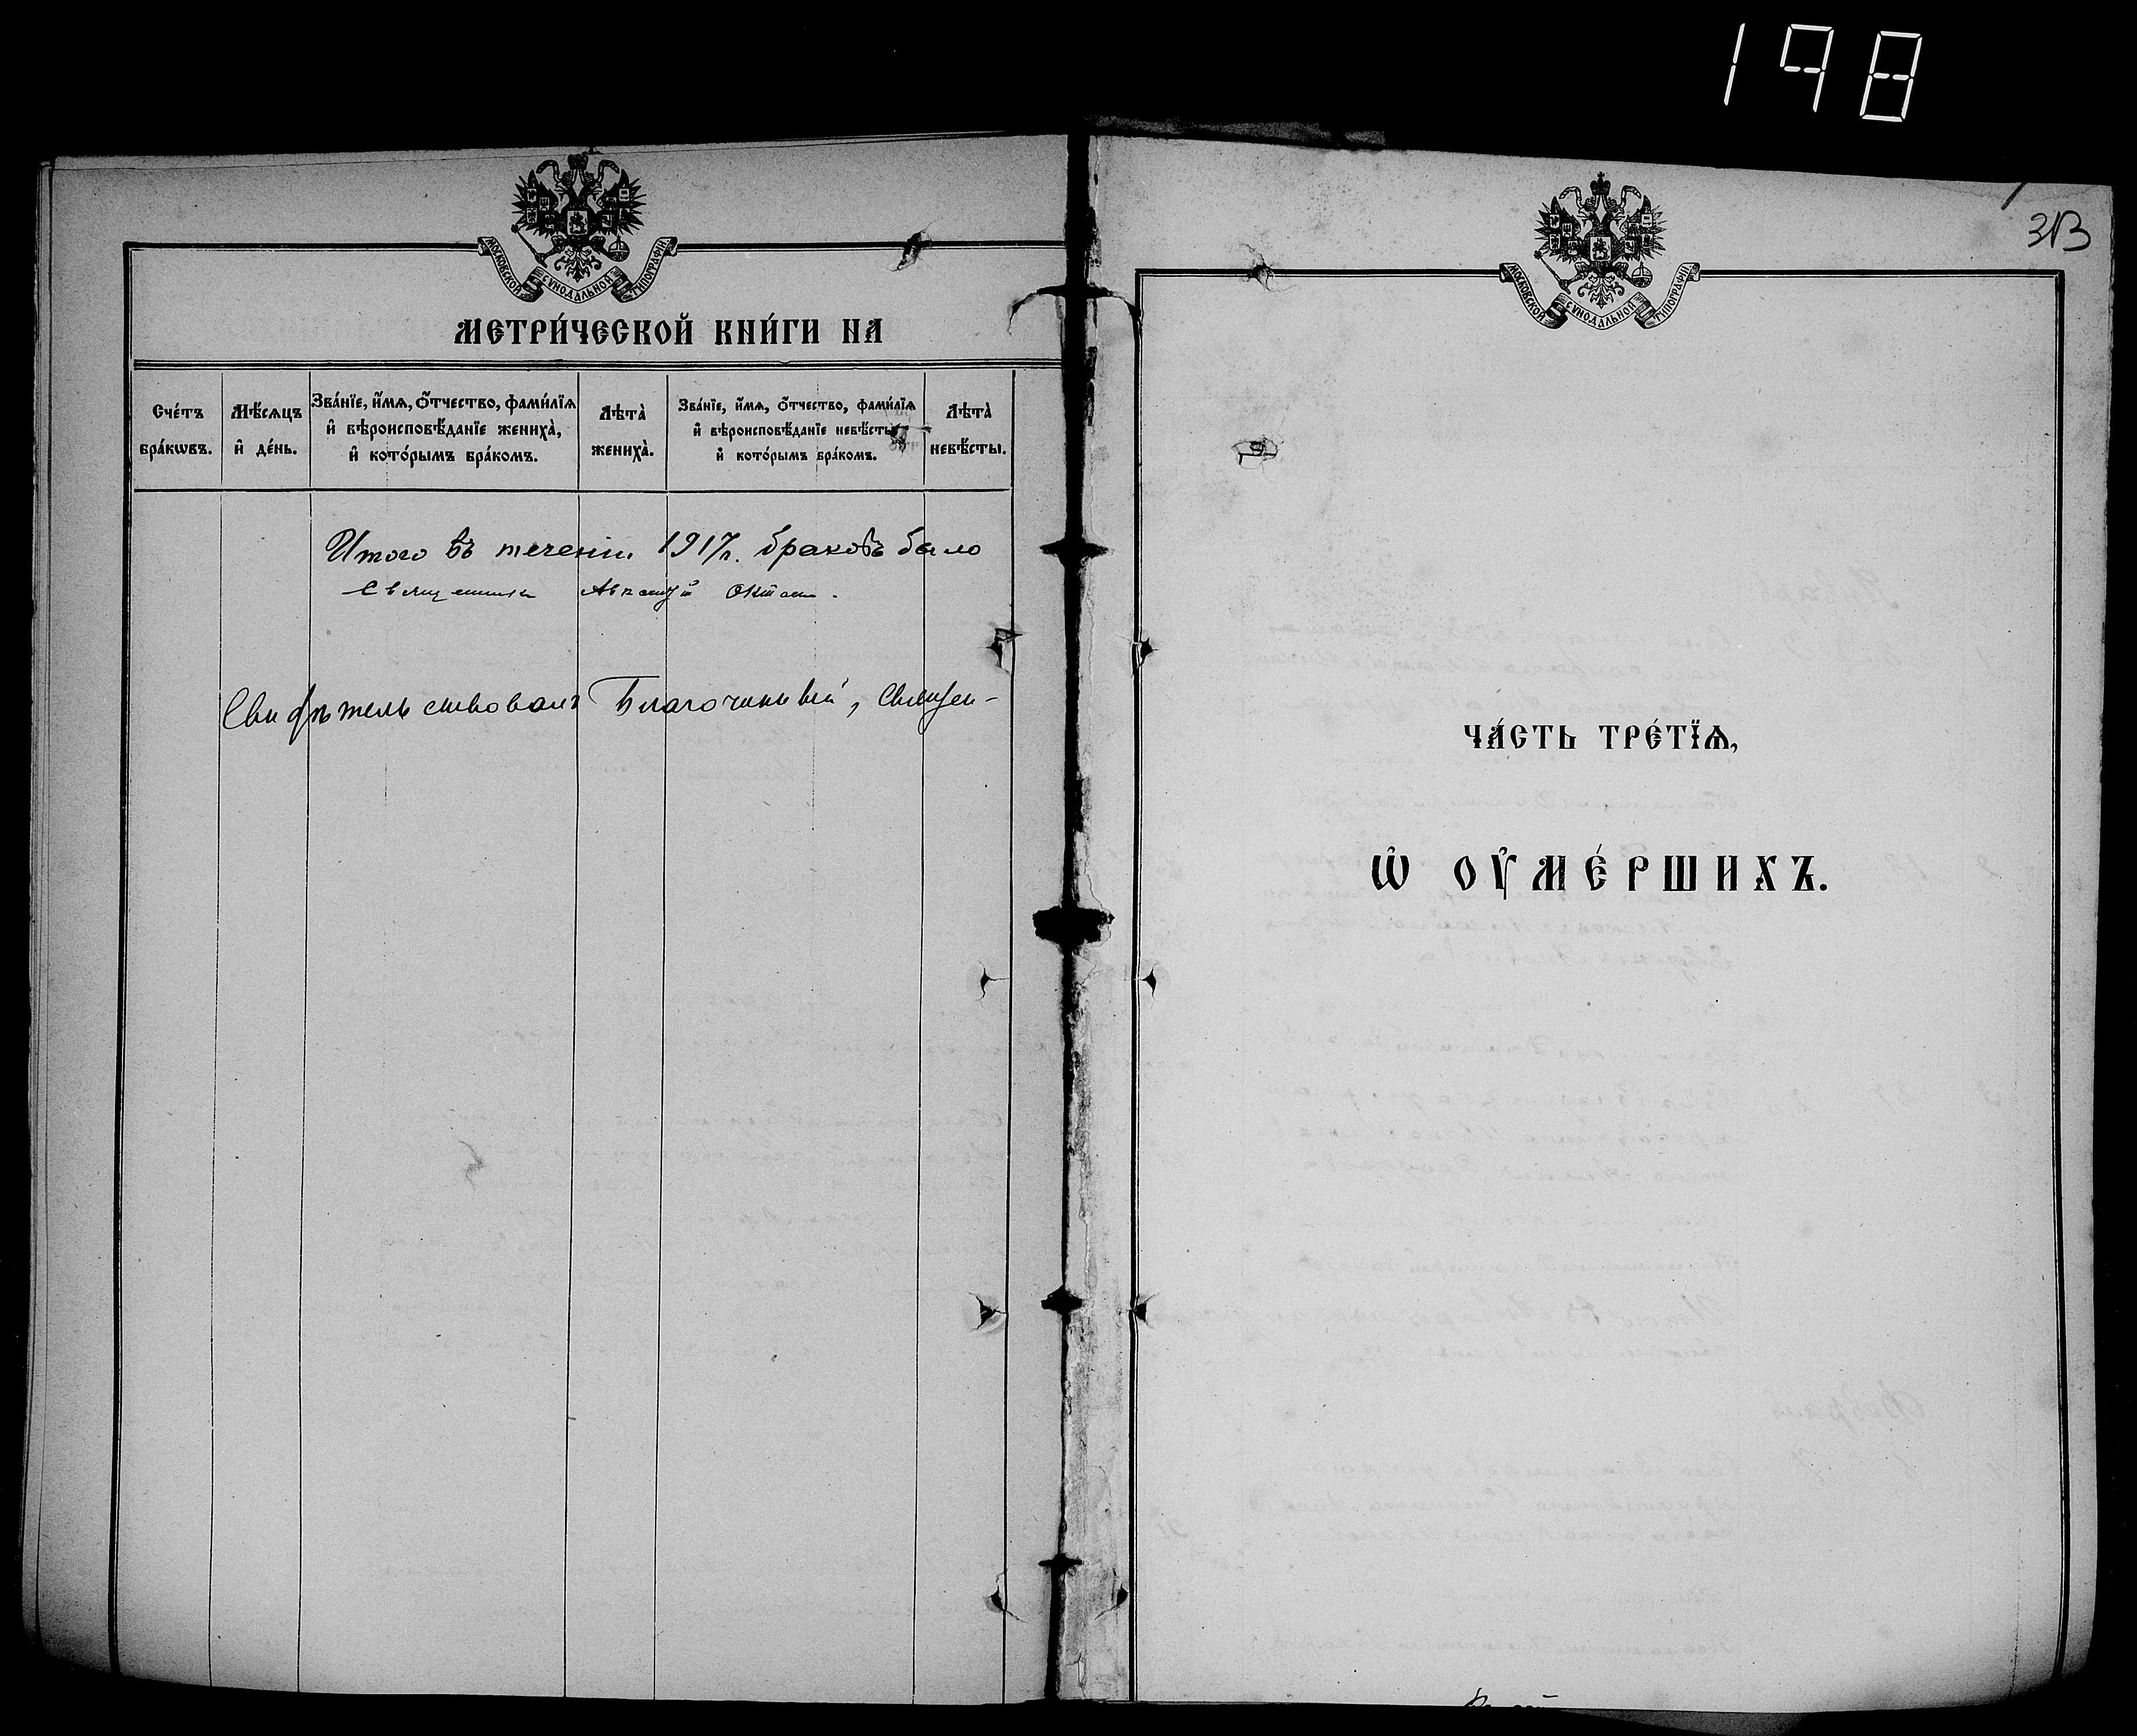 198
МОСКОВСКОЙ СѴНОДАЛЬНОЙ ТИПОГРАФІИ
МЕТРИ́ЧЕСКОЙ КНИ́ГИ НА
Сче́тъ бра́кѡвъ.
Мѣ́сѧцъ и҆ де́нь.
Зва́нїе, и҆́мѧ, ѻ҆́тчество, фами́лїѧ
и҆ вѣроисповѣ́данїе жениха̀,
и҆ кото́рымъ бра́комъ.
Лѣта̀ жениха̀.
Зва́нїе, и҆́мѧ, ѻ҆́тчество, фами́лїѧ
и҆ вѣроисповѣ́данїе невѣ́сты,
и҆ кото́рымъ бра́комъ.
Лѣта̀ невѣ́сты.
Итого въ теченіи 1917 г. браковъ было
Священникъ
Свидѣтельствовалъ Благочинный, Священ-
МОСКОВСКОЙ СѴНОДАЛЬНОЙ ТИПОГРАФІИ
ЧА́СТЬ ТРЕ́ТЇѦ,
Ѡ҆ ОУ҆МЕ́РШИХЪ.